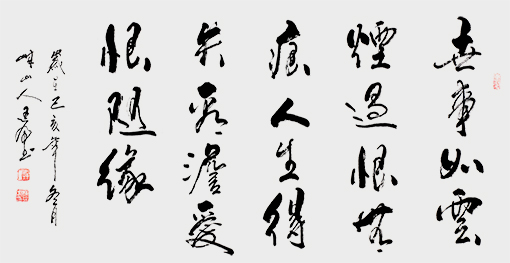 世事如雲
煙過眼無
痕人生得
失看澹愛
恨隨緣
歲在己亥年冬月
山人王書